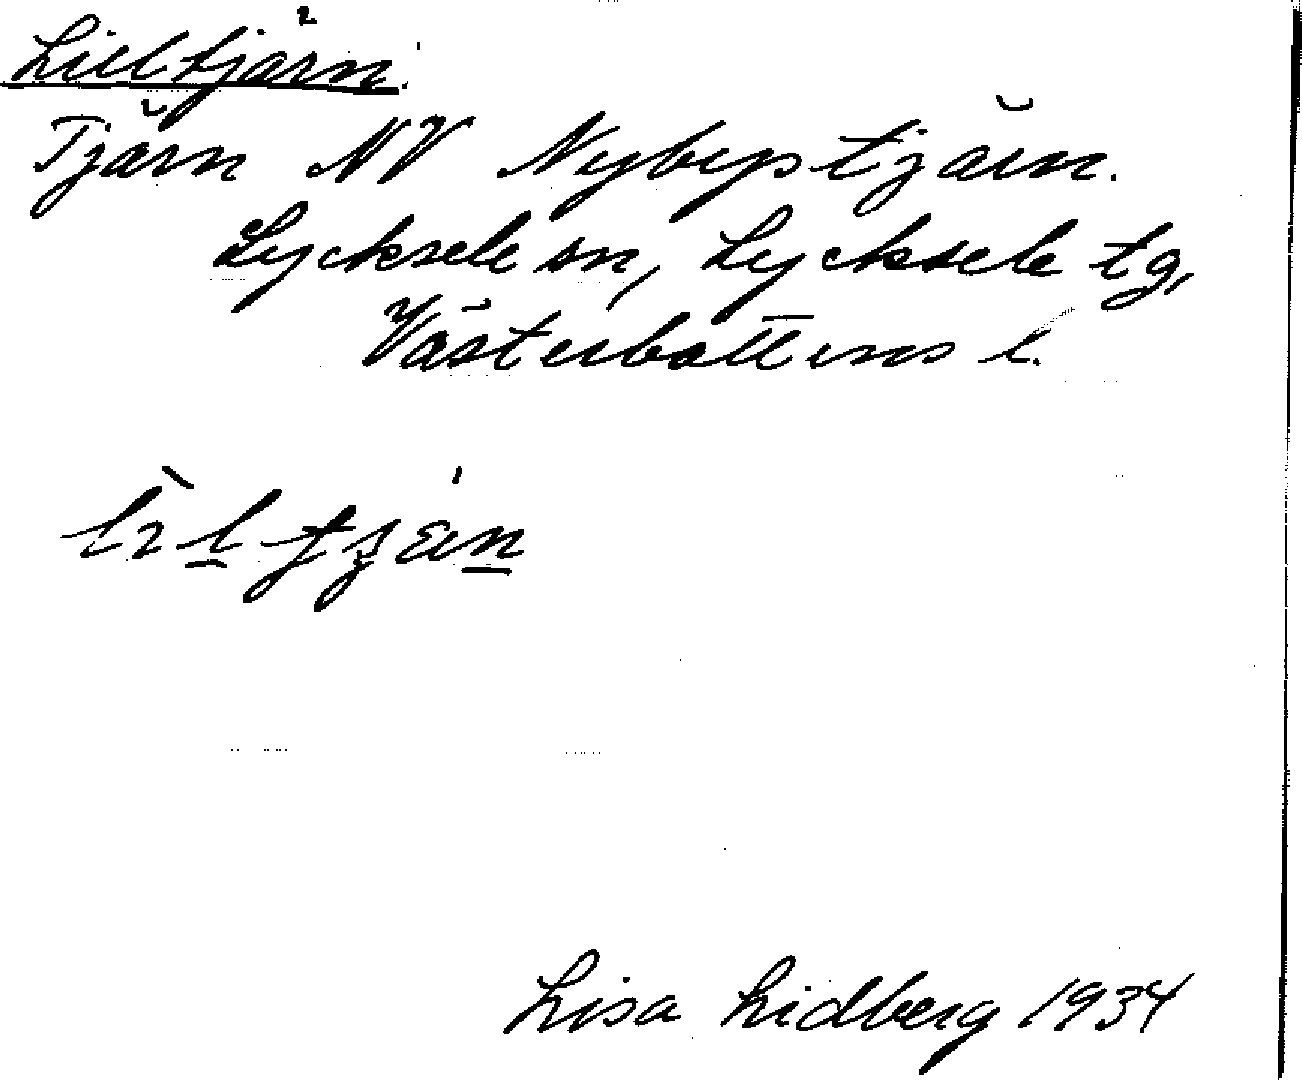 Liltjärn.
Tjärn NV Nybyggstjärn.
Lycksele sn, Lycksele tg,
Västerbottens l.
Lisa Lidberg 1934